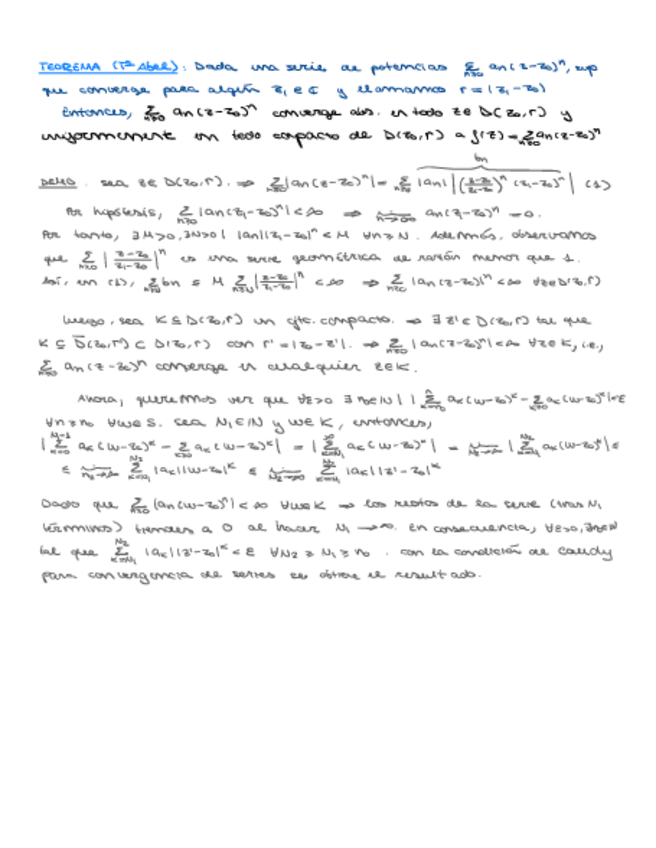 TEOREMA (Tª Abel): Dada una serie de potencias ∑_{n≥0} an(z-z₀)ⁿ, sup
que converge para algún z₁ ∈ ℂ y llamamos r = |z₁-z₀)
Entonces, ∑_{n≥0} an(z-z₀)ⁿ converge abs. en todo z∈D(z₀,r) y
uniformemente en todo compacto de D(z₀,r) a f(z) = ∑_{n≥0} an(z-z₀)ⁿ
bn
DEMO. sea z∈D(z₀,r). ⇒ ∑_{n≥0}|an(z-z₀)ⁿ| = ∑_{n≥0} |an| |(z-z₀/z₁-z₀)ⁿ (z₁-z₀)ⁿ| (1)
Por hipótesis, ∑_{n≥0} |an(z₁-z₀)ⁿ| < ∞ ⇒ lim_{n→∞} an(z₁-z₀)ⁿ = 0.
Por tanto, ∃M>0, ∃N>0 | |an||z₁-z₀|ⁿ < M ∀n≥N. Además, observamos
que ∑_{n≥0} |z-z₀/z₁-z₀|ⁿ es una serie geométrica de razón menor que 1.
Así, en (1), ∑_{n≥N} bn ≤ M ∑_{n≥N} |z-z₀/z₁-z₀|ⁿ < ∞ ⇒ ∑_{n≥0} |an(z-z₀)ⁿ| < ∞ ∀z∈D(z₀,r)
Luego, sea K ⊆ D(z₀,r) un cjto. compacto. ⇒ ∃ z' ∈ D(z₀,r) tal que
K ⊆ D̅(z₀,r') ⊂ D(z₀,r) con r' = |z₀-z'|. ⇒ ∑_{n≥0} |an(z-z₀)ⁿ| < ∞ ∀z∈K, i.e.,
∑_{n≥0} an(z-z₀)ⁿ converge en cualquier z∈K.
Ahora, queremos ver que ∀ε>0 ∃ n₀∈ℕ | |∑_{k=0}^{n} aₖ(w-z₀)ᵏ - ∑_{k≥0} aₖ(w-z₀)ᵏ| < ε
∀n≥n₀ ∀w∈S. sea N₁∈ℕ y w∈K, entonces,
|∑_{k=0}^{N₁-1} aₖ(w-z₀)ᵏ - ∑_{k≥0} aₖ(w-z₀)ᵏ| = |∑_{k=N₁}^{∞} aₖ(w-z₀)ᵏ| = lim_{N₂→∞} |∑_{k=N₁}^{N₂} aₖ(w-z₀)ᵏ| ≤
≤ lim_{N₂→∞} ∑_{k=N₁}^{N₂} |aₖ||w-z₀|ᵏ ≤ lim_{N₂→∞} ∑_{k=N₁}^{N₂} |aₖ||z'-z₀|ᵏ
Dado que ∑_{n≥0} |an(w-z₀)ⁿ| < ∞ ∀w∈K ⇒ los restos de la serie (tras N₁
términos) tienden a 0 al hacer N₁ → ∞. En consecuencia, ∀ε>0, ∃n₀∈ℕ
tal que ∑_{k=N₁}^{N₂} |aₖ||z'-z₀|ᵏ < ε ∀N₂ ≥ N₁ ≥ n₀. con la condición de Cauchy
para convergencia de series se obtiene el resultado.